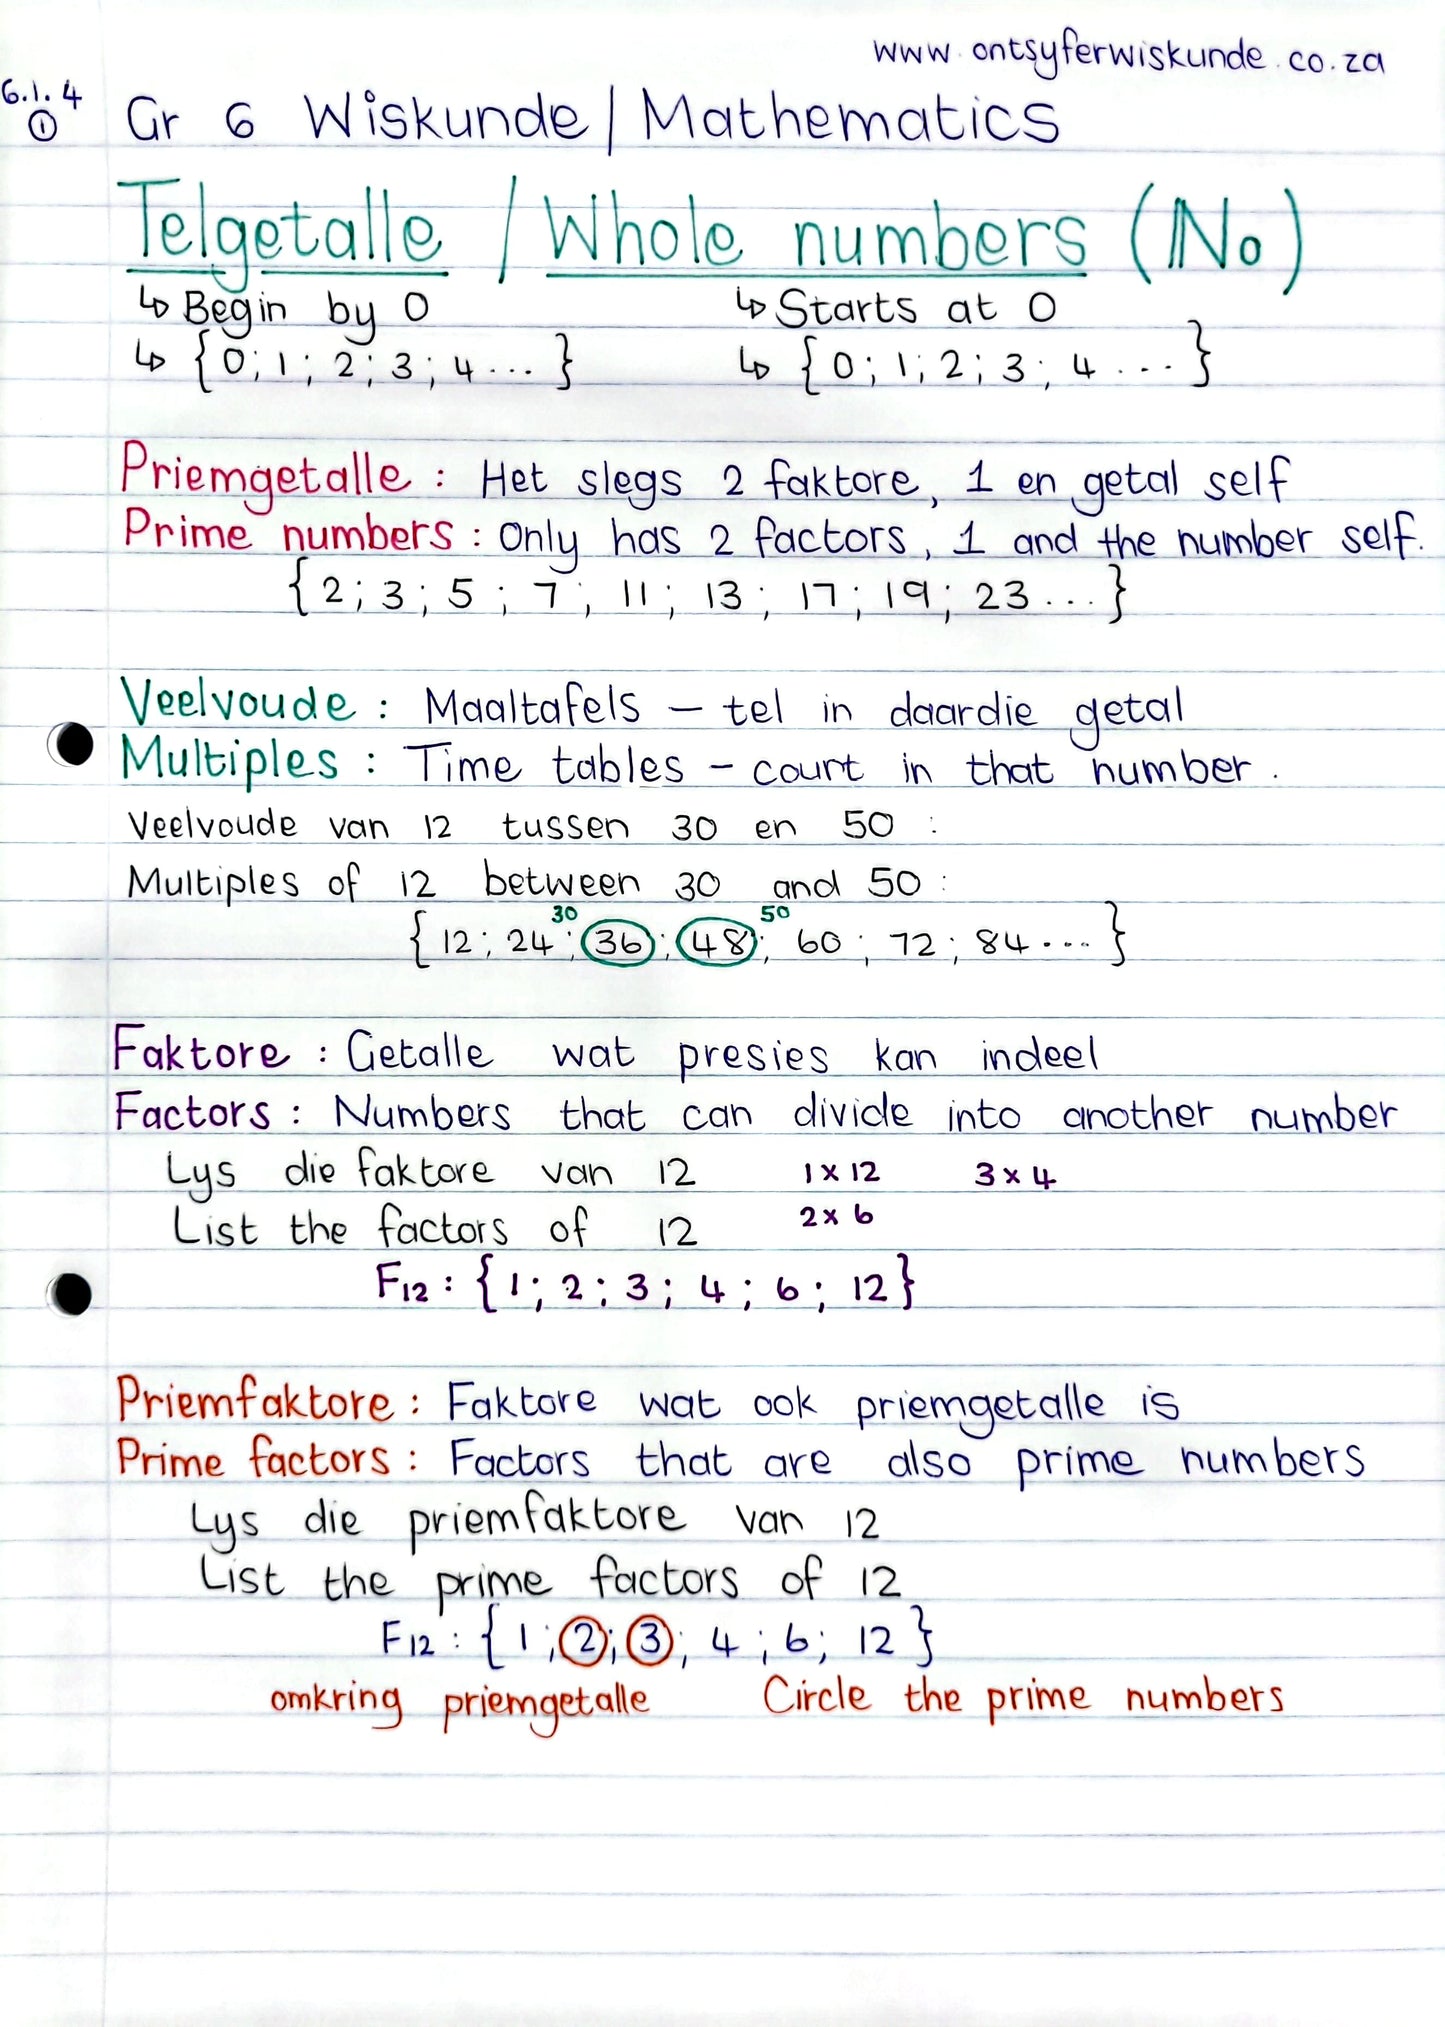 www.ontsyferwiskunde.co.za
6.1.4
①
Gr 6 Wiskunde / Mathematics
Telgetalle / Whole numbers (ℕ₀)
↳ Begin by 0 ↳ Starts at 0
↳ {0; 1; 2; 3; 4...} ↳ {0; 1; 2; 3; 4...}
Priemgetalle: Het slegs 2 faktore, 1 en getal self
Prime numbers: Only has 2 factors, 1 and the number self.
{2; 3; 5; 7; 11; 13; 17; 19; 23...}
Veelvoude: Maaltafels - tel in daardie getal
Multiples: Time tables - count in that number.
Veelvoude van 12 tussen 30 en 50:
Multiples of 12 between 30 and 50:
30 50
{12; 24; 36; 48; 60; 72; 84...}
Faktore: Getalle wat presies kan indeel
Factors: Numbers that can divide into another number
Lys die faktore van 12 1 x 12 3 x 4
List the factors of 12 2 x 6
F12: {1; 2; 3; 4; 6; 12}
Priemfaktore: Faktore wat ook priemgetalle is
Prime factors: Factors that are also prime numbers
Lys die priemfaktore van 12
List the prime factors of 12
F12: {1; 2; 3; 4; 6; 12}
omkring priemgetalle Circle the prime numbers